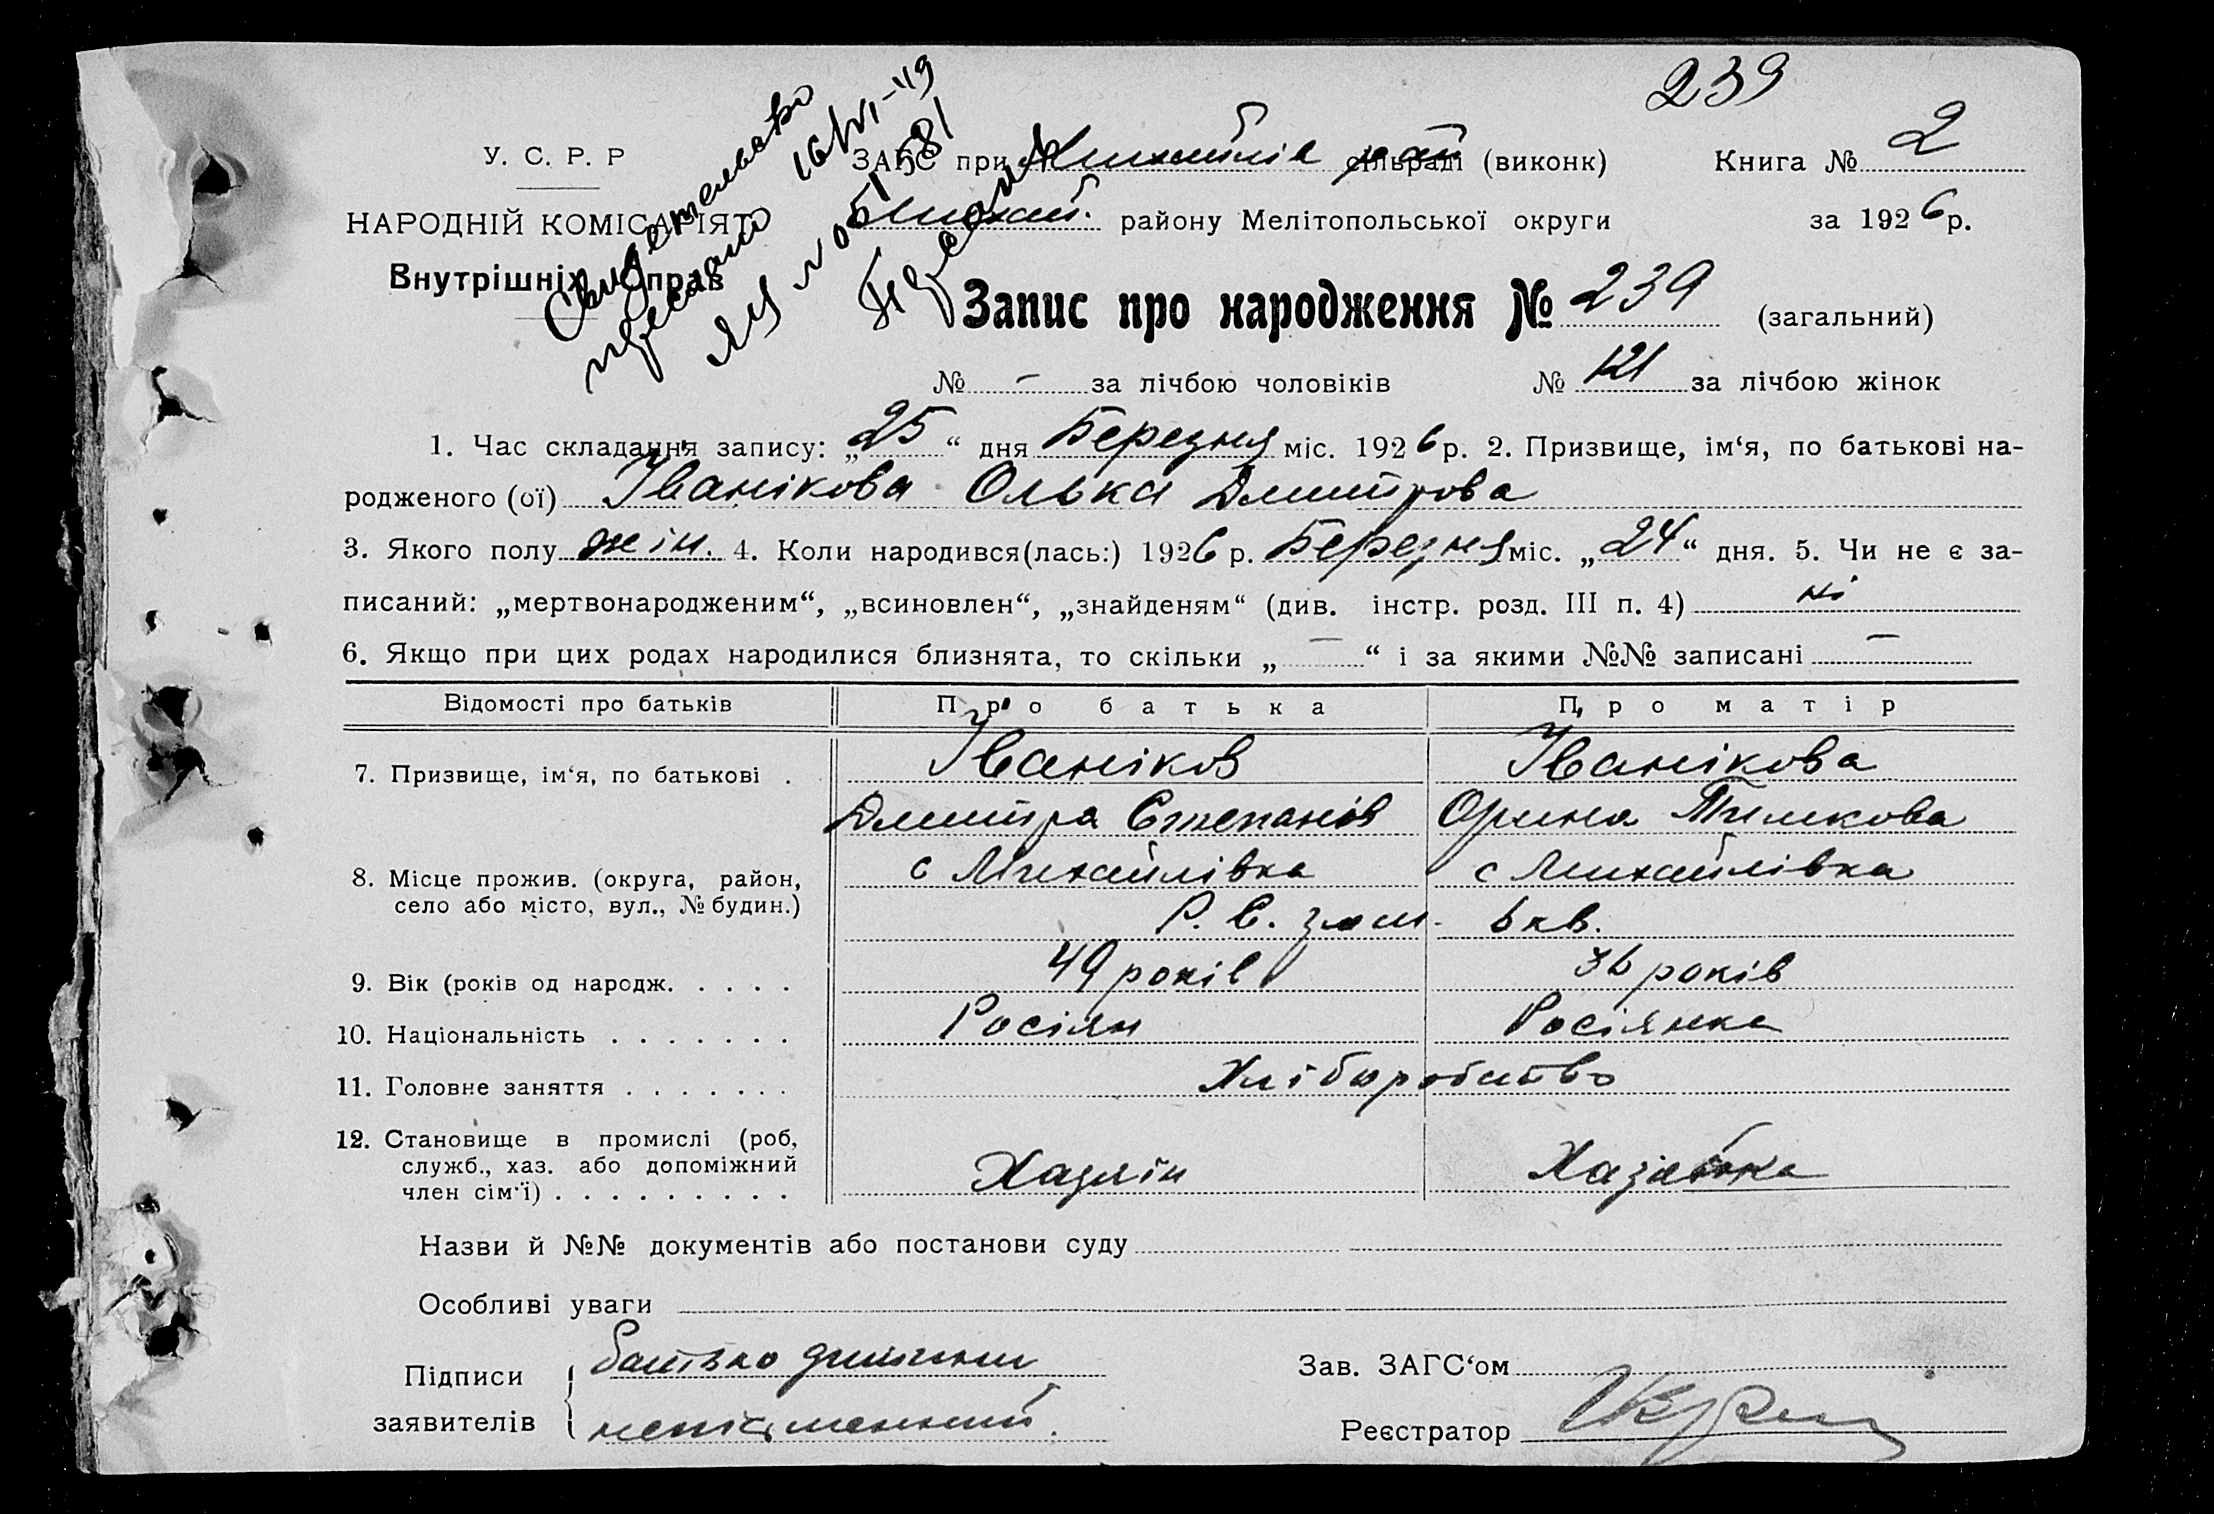 239
У. С. Р. Р
ЗАГС при Михайлів рай сільраді (виконк)
Книга № 2
НАРОДНІЙ КОМІСАРІЯТ
Михай. району Мелітопольської округи
за 1926р.
Внутрішніх Справ
Свидетельство
послано 16/VI-49
ЯЦ № 051581
Запис про народження № 239 (загальний)
№ – за лічбою чоловіків № 121 за лічбою жінок
1. Час складання запису: „25“ дня Березня міс. 1926р. 2. Призвище, ім‘я, по батькові на-
родженого (ої) Іванікова Олька Дмитрова
3. Якого полу жін. 4. Коли народився(лась:) 1926р. Березня міс. „24“ дня. 5. Чи не є за-
писаний: „мертвонародженим“, „всиновлен“, „знайденям“ (див. інстр. розд. III п. 4) ні
6. Якщо при цих родах народилися близнята, то скільки „–“ і за якими №№ записані –
Відомості про батьків Про батька Про матір
7. Призвище, ім‘я, по батькові . Іваніков Іванікова
Дмитра Степанів Орина Тимкова
8. Місце прожив. (округа, район, с Михайлівка с Михайлівка
село або місто, вул., № будин.) Р. С. 6 кв.
9. Вік (років од народж. . . . . 49 років 36 років
10. Національність . . . . . . . Росіян Росіянка
11. Головне заняття . . . . . . . Хліборобство
12. Становище в промислі (роб,
служб., хаз. або допоміжний Хазяїн Хазяйка
член сім‘ї) . . . . . . . . .
Назви й №№ документів або постанови суду
Особливі уваги
Підписи батько дитини
заявителів неписьменний.
Зав. ЗАГС‘ом
Реєстратор